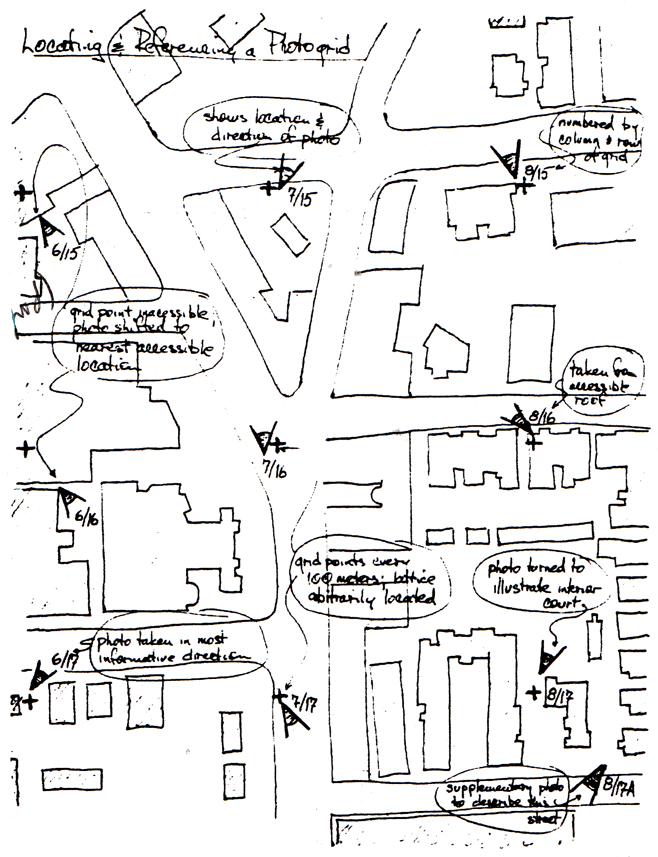 Locating & Referencing a Photogrid
shows location &
direction of photo
numbered by
column & row
of grid
8/15
7/15
6/15
grid point inaccessible,
photo shifted to
nearest accessible
location
taken from
accessible
roof
8/16
7/16
6/16
grid points every
100 meters; lattice
abitrarily located
photo turned to
illustrate interior
court
photo taken in most
informative direction
6/17
7/17
8/17
supplementary photo
to describe this
street
8/17A